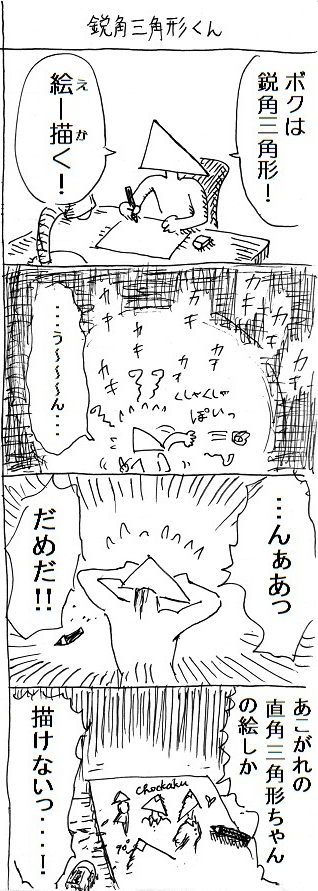 鋭角三角形くん
ボクは
鋭角三角形!
絵ー描く!
え
か
カキ
カキ
カキ
カキ
カキ
カキ
カキ
くしゃくしゃ
ぽいっ
・・・う〜〜〜ん・・・
・・・んぁあっ
だめだ!!
あこがれの
直角三角形ちゃん
の絵しか
描けないっ・・・!
Chockaku
90°